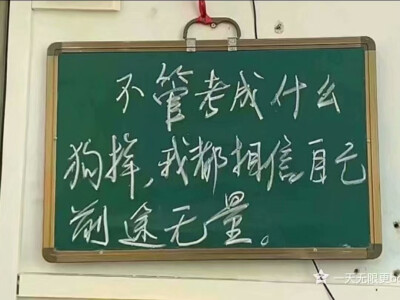 不管考成什么
狗样，我都相信自己
前途无量。
一天无限更b